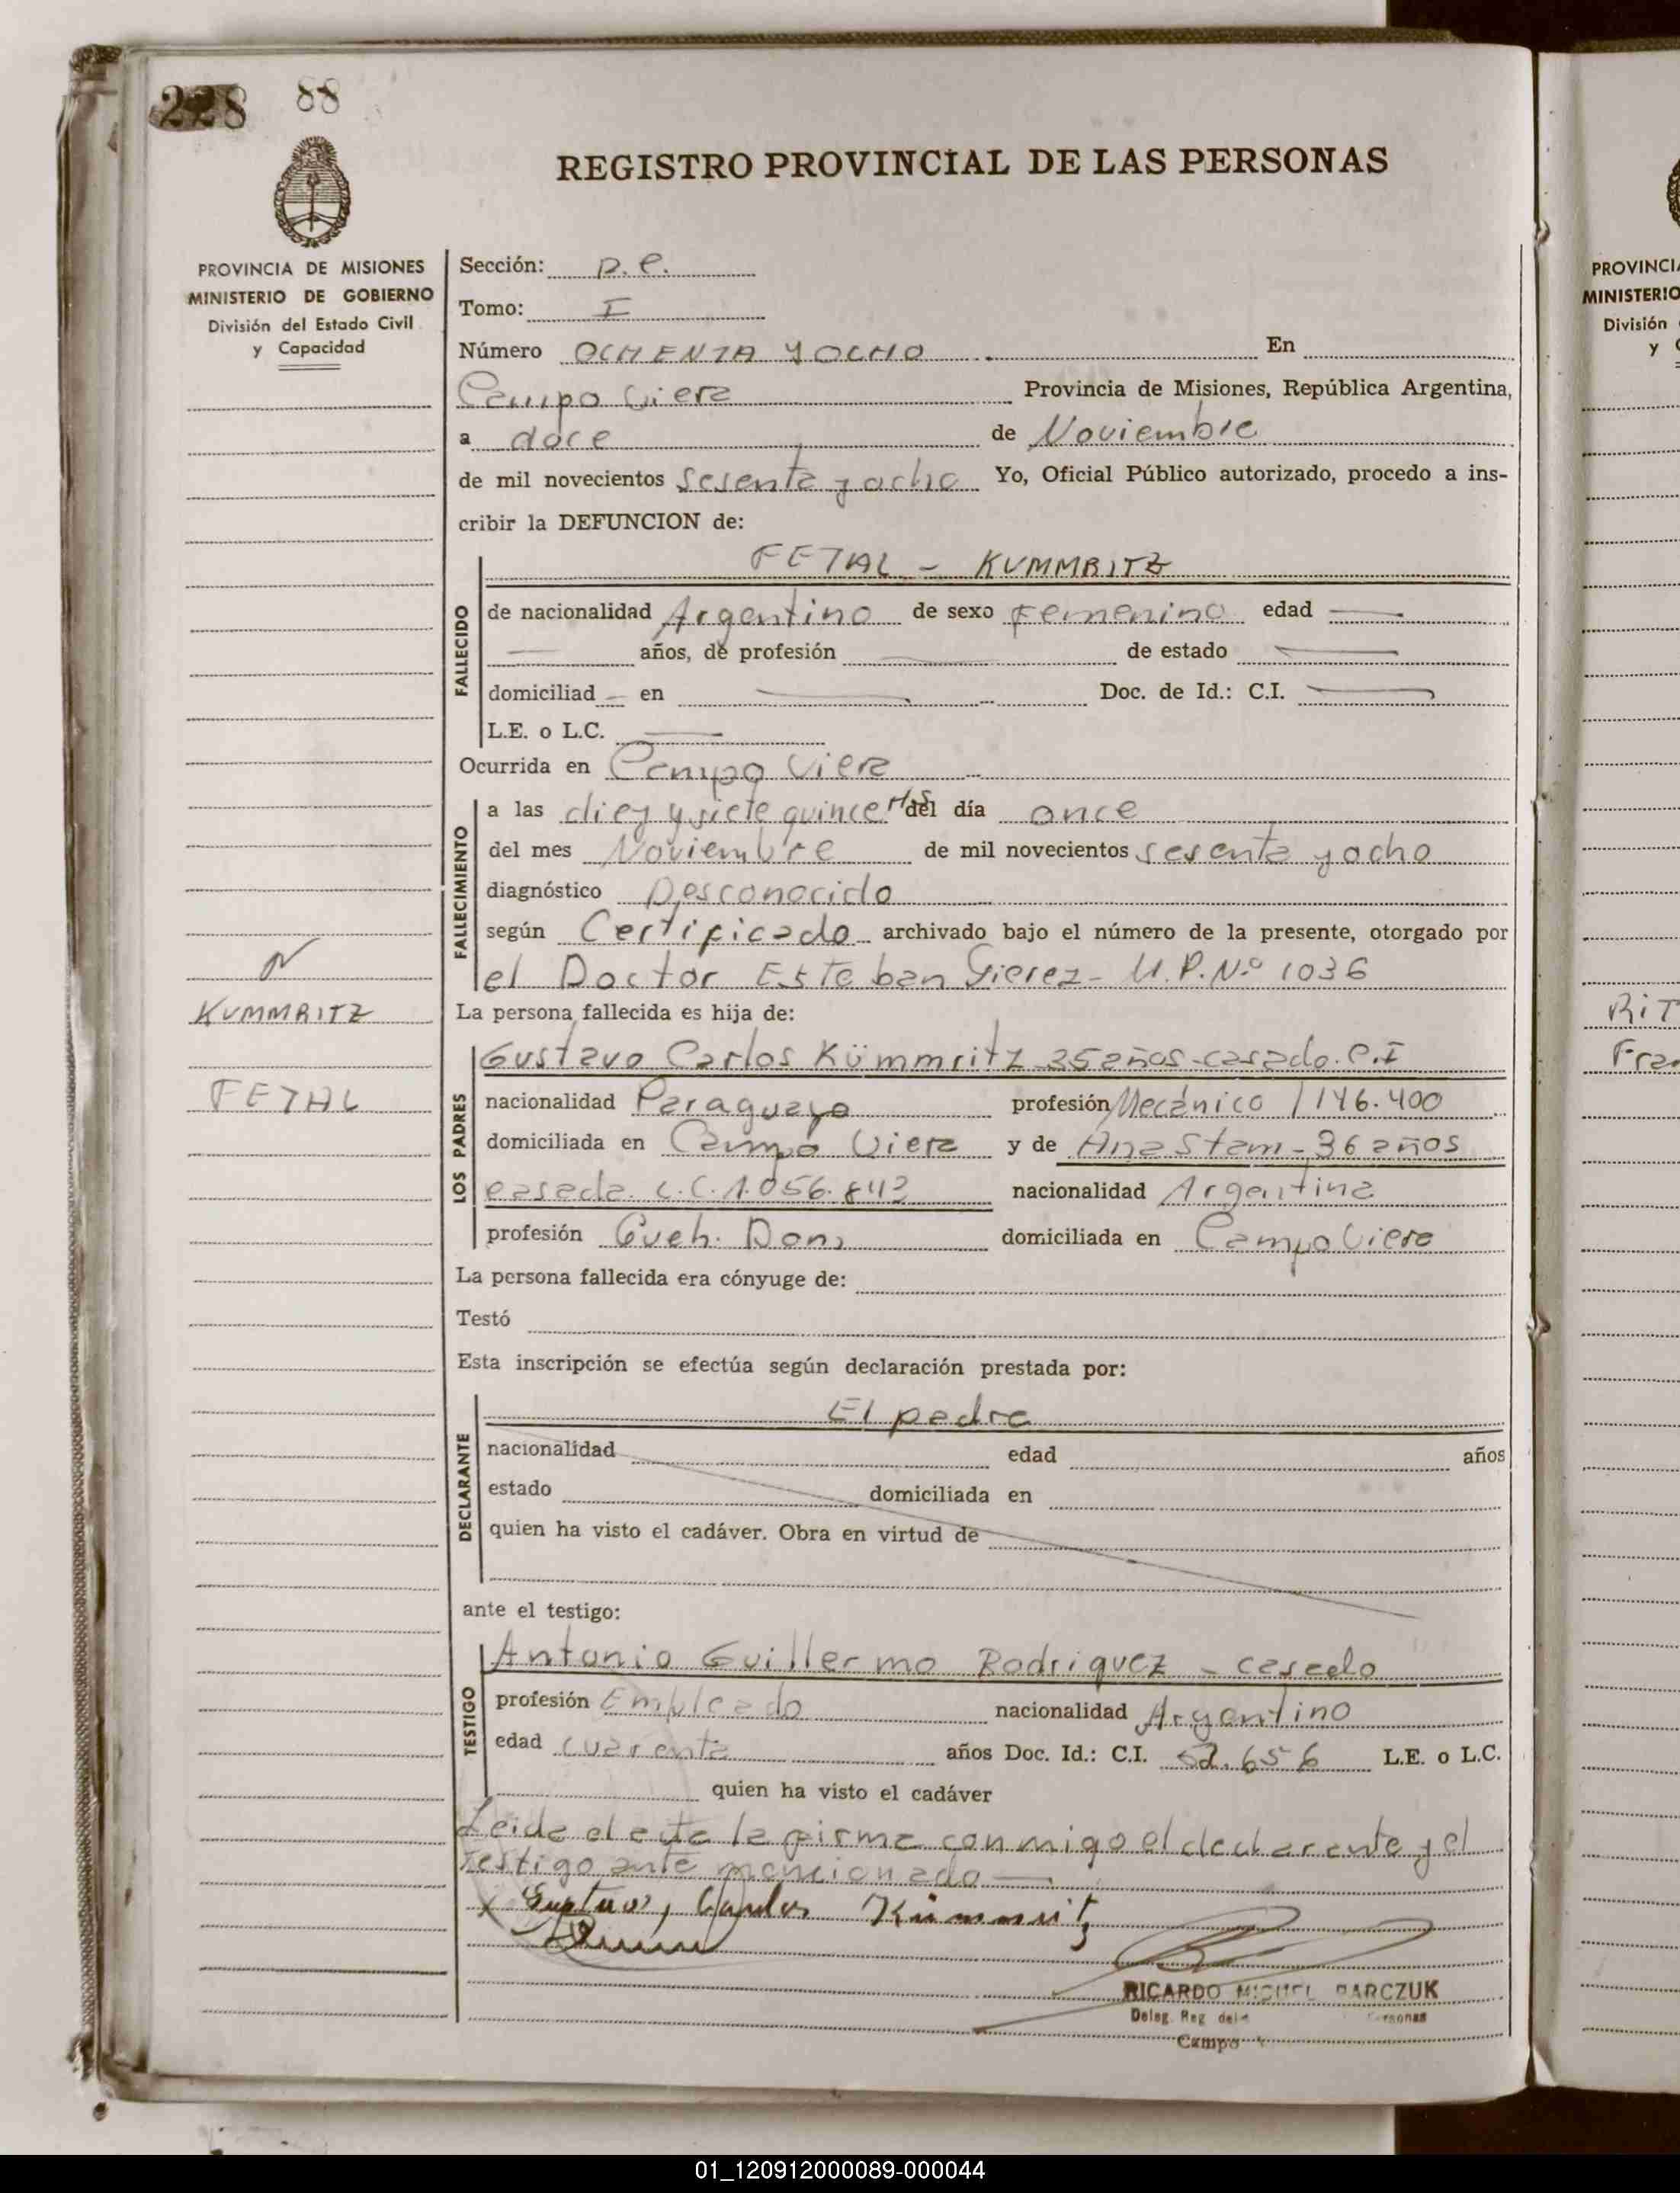 228 88
REGISTRO PROVINCIAL DE LAS PERSONAS
PROVINCIA DE MISIONES
MINISTERIO DE GOBIERNO
División del Estado Civil
y Capacidad
Sección:
Tomo: I
Número OCHENTA Y OCHO En
Campo Viera Provincia de Misiones, República Argentina,
a doce de Noviembre
de mil novecientos sesenta y ocho Yo, Oficial Público autorizado, procedo a ins-
cribir la DEFUNCION de:
FETAL - KUMMRITZ
FALLECIDO
de nacionalidad Argentino de sexo Femenino edad
años, de profesión de estado
domiciliad en Doc. de Id.: C.I.
L.E. o L.C.
Ocurrida en Campo Viera
FALLECIMIENTO
a las diez y siete quince Hs del día once
del mes Noviembre de mil novecientos sesenta y ocho
diagnóstico Desconocido
según Certificado archivado bajo el número de la presente, otorgado por
el Doctor Esteban M.P.Nº 1036
KUMMRITZ
FETAL
La persona fallecida es hija de:
LOS PADRES
Gustavo Carlos Kümmritz 35 años - casado. C.I
nacionalidad Paraguayo profesión Mecánico 1146.400
domiciliada en Campo Viera y de Ana Stam - 36 años
casada. L.C. 1.056.842 nacionalidad Argentina
profesión Queh. Dom. domiciliada en Campo Viera
La persona fallecida era cónyuge de:
Testó
Esta inscripción se efectúa según declaración prestada por:
DECLARANTE
El padre
nacionalidad edad años
estado domiciliada en
quien ha visto el cadáver. Obra en virtud de
ante el testigo:
TESTIGO
Antonio Guillermo Rodriguez - casado
profesión Empleado nacionalidad Argentino
edad cuarenta años Doc. Id.: C.I. 52.656 L.E. o L.C.
quien ha visto el cadáver
Leida el acta la firma conmigo el declarante y el
testigo ante mencionado
x Gustavo, Carlos Kümmritz
RICARDO MIGUEL PARCZUK
Deleg. Reg. de las Personas
Campo
PROVINCIA
MINISTERIO
División
y
RIT
Fra
01_120912000089-000044